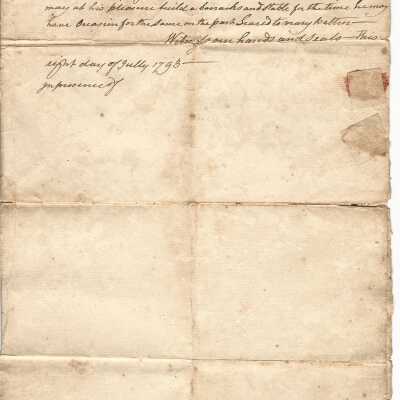 may at his pleasure build a barracks and stable for the time he may
have Occasion for the same on the part Leased to mary Patten
Witness our hands and seals This
eight day of Jully 1793
In presence of